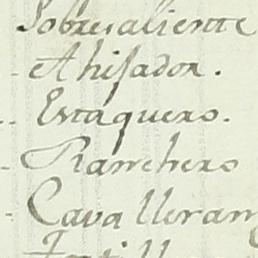 Sobresaliente
Ahijador.
Estaquero.
Ranchero
Cavalleran